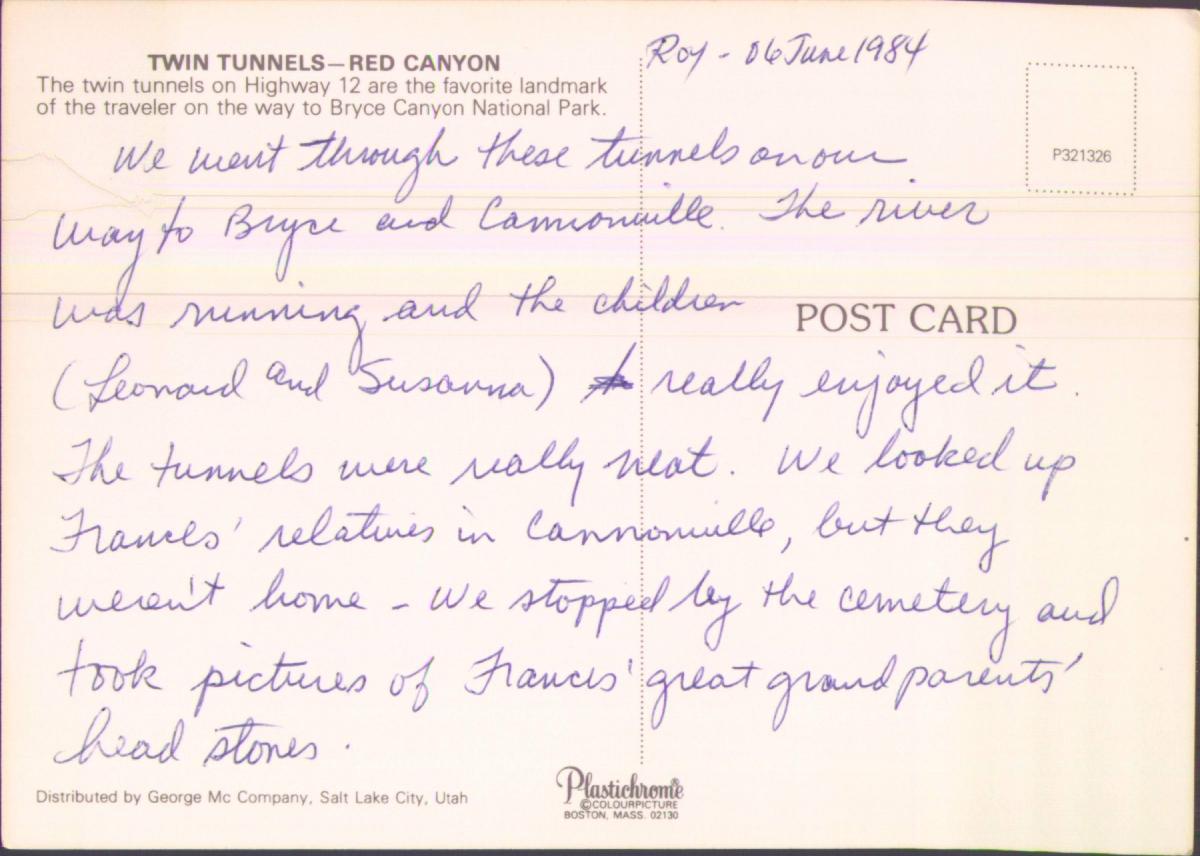 TWIN TUNNELS—RED CANYON
The twin tunnels on Highway 12 are the favorite landmark
of the traveler on the way to Bryce Canyon National Park.
Roy - 06 June 1984
P321326
We went through these tunnels on our
way to Bryce and Cannonville. The river
was running and the children
POST CARD
(Leonard and Susanna) really enjoyed it.
The tunnels were really neat. We looked up
Frances' relatives in Cannonville, but they
weren't home - We stopped by the cemetery and
took pictures of Frances' great grandparents'
head stones.
Distributed by George Mc Company, Salt Lake City, Utah
Plastichrome®
©COLOURPICTURE
BOSTON, MASS. 02130